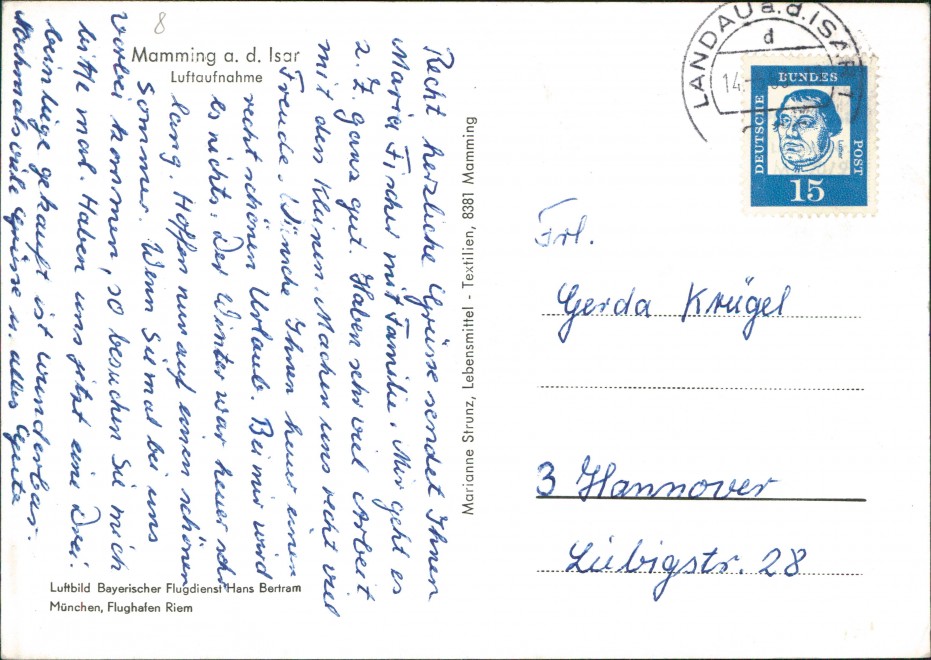 8
Mamming a. d. Isar
Luftaufnahme
Recht herzliche Grüsse sendet Ihnen
Maria Fischer mit Familie. Mir geht es
z. Z. ganz gut. Haben sehr viel Arbeit
mit den Kleinen. Machen uns recht viel
Freude. Wünsche Ihnen heuer einen
recht schönen Urlaub. Bei mir wird
es nichts. Der Winter war heuer sehr
lang. Hoffen nun auf einen schönen
Sommer. Wenn Sie mal bei uns
vorbei kommen, so besuchen Sie mich
bitte mal. Haben uns jetzt eine Drei-
gekauft ist wunderbar.
Nochmals viele Grüsse u. alles Gute
Luftbild Bayerischer Flugdienst Hans Bertram
München, Flughafen Riem
Marianne Strunz, Lebensmittel - Textilien, 8381 Mamming
LANDAU a.d. ISAR
d
14.
DEUTSCHE
BUNDES
POST
15
Frl.
Gerda Krügel
3 Hannover
Liebigstr. 28